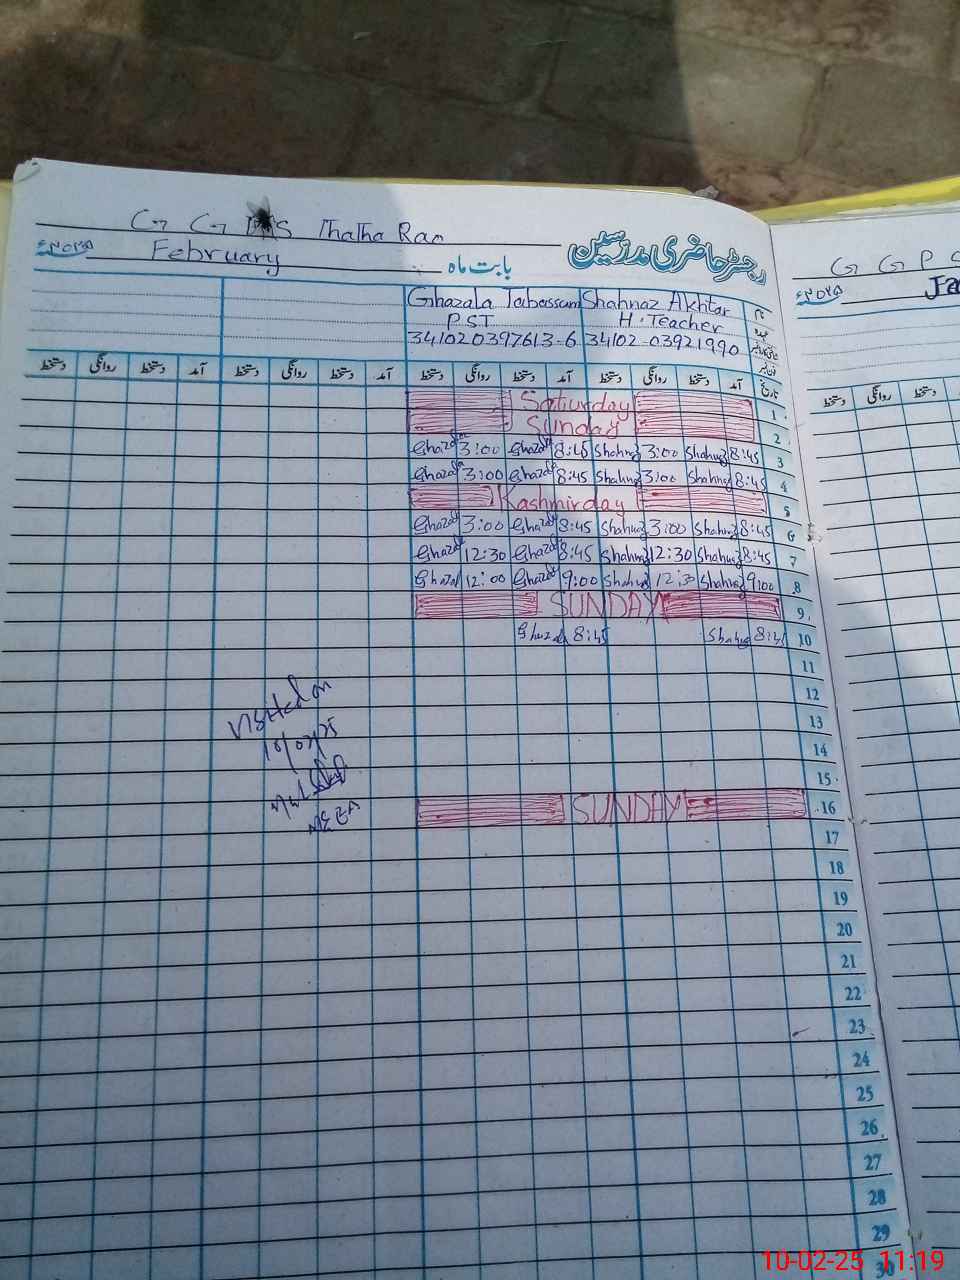 G G P S Thatha Ran
رجسٹر حاضری مدرسین
February بابت ماہ ۲۰۲۵ء
Ghazala Tabassum Shahnaz Akhtar نام
PST H.Teacher عہدہ
341020397613-6 34102-03921990
دستخط روانگی دستخط آمد دستخط روانگی دستخط آمد دستخط روانگی دستخط آمد دستخط روانگی دستخط آمد تاریخ
Saturday 1
Sunday 2
Ghazal 3:00 Ghazal 8:45 Shahnaz 3:00 Shahnaz 8:45 3
Ghazal 3:00 Ghazal 8:45 Shahnaz 3:00 Shahnaz 8:45 4
Kashmirday 5
Ghazal 3:00 Ghazal 8:45 Shahnaz 3:00 Shahnaz 8:45 6
Ghazal 12:30 Ghazal 8:45 Shahnaz 12:30 Shahnaz 8:45 7
Ghazal 12:00 Ghazal 9:00 Shahnaz 12:30 Shahnaz 9:00 8
SUNDAY 9
Ghazal 8:45 Shahnaz 8:45 10
11
12
13
14
15
SUNDAY 16
17
18
19
20
21
22
23
24
25
26
27
28
29
30
Visited on
10/02/25
MEEA
G G P S
۲۰۲۵ء Ja
دستخط روانگی دستخط
10-02-25 11:19